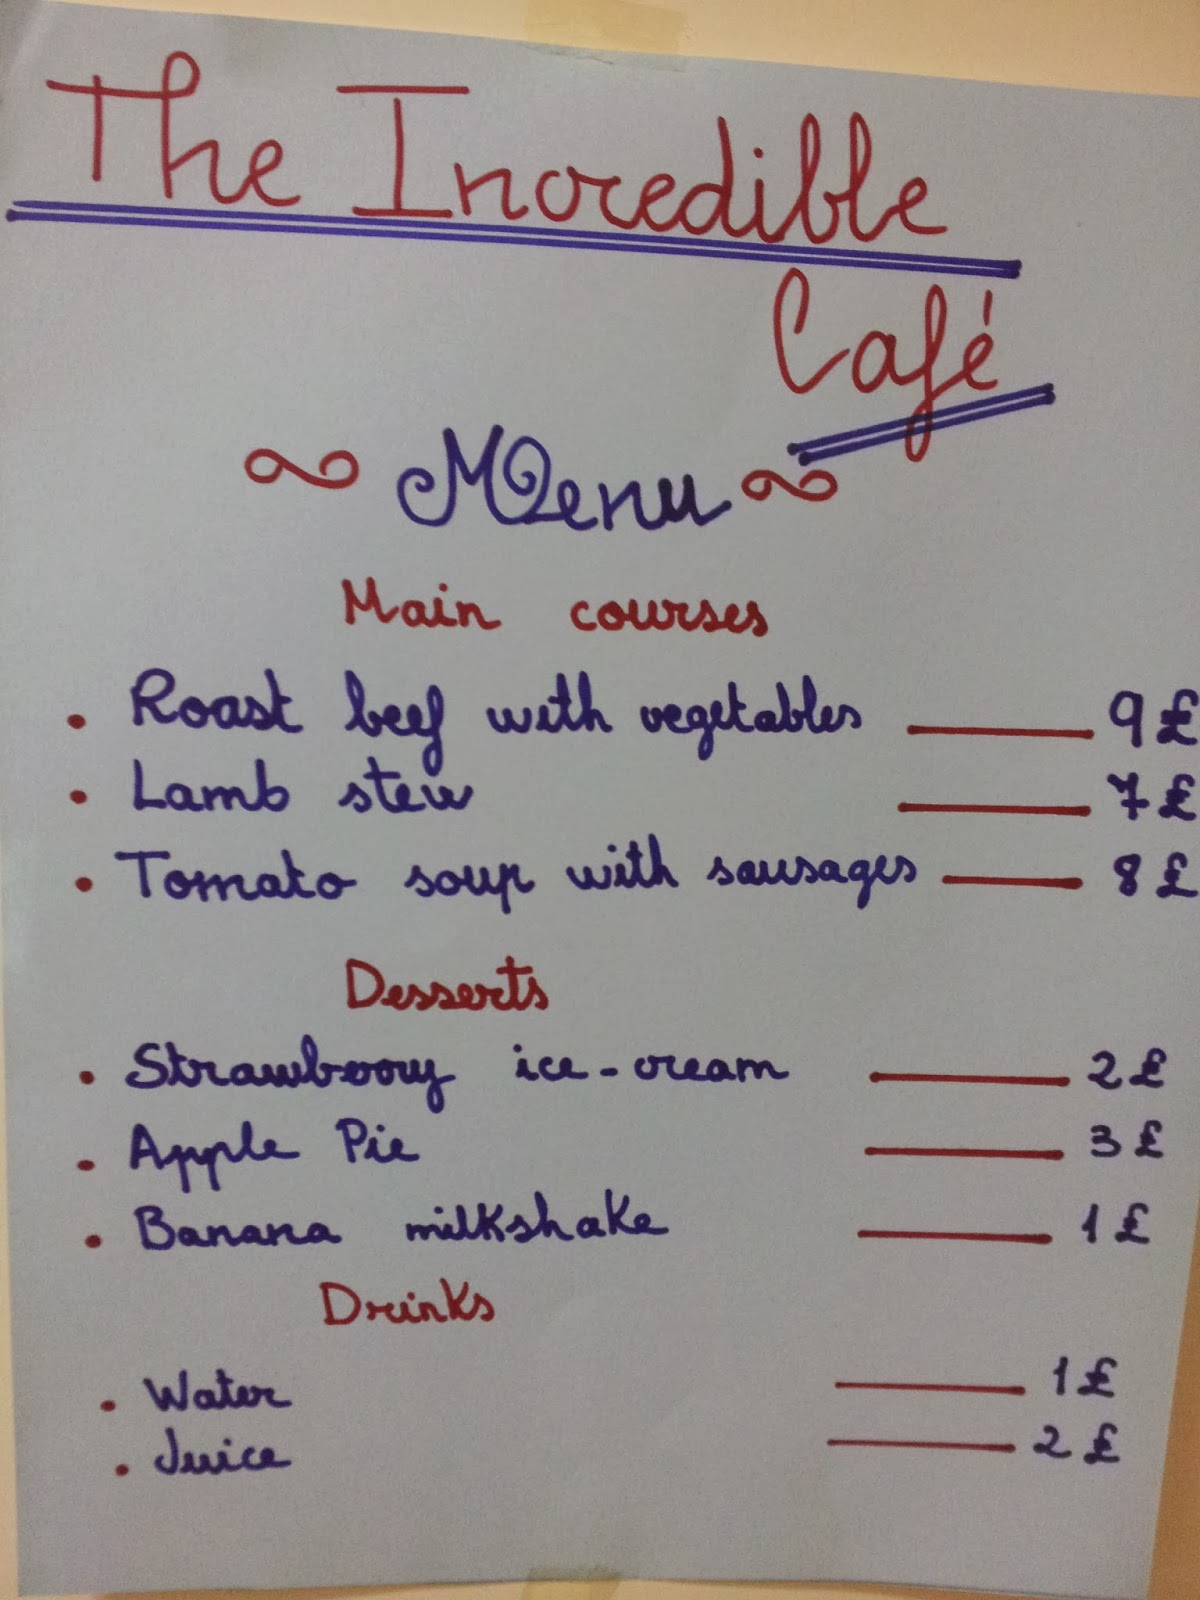 The Incredible
Café
Menu
Main courses
. Roast beef with vegetables 9 £
. Lamb stew 7 £
. Tomato soup with sausages 8 £
Desserts
. Strawberry ice-cream 2 £
. Apple Pie 3 £
. Banana milkshake 1 £
Drinks
. Water 1 £
. Juice 2 £